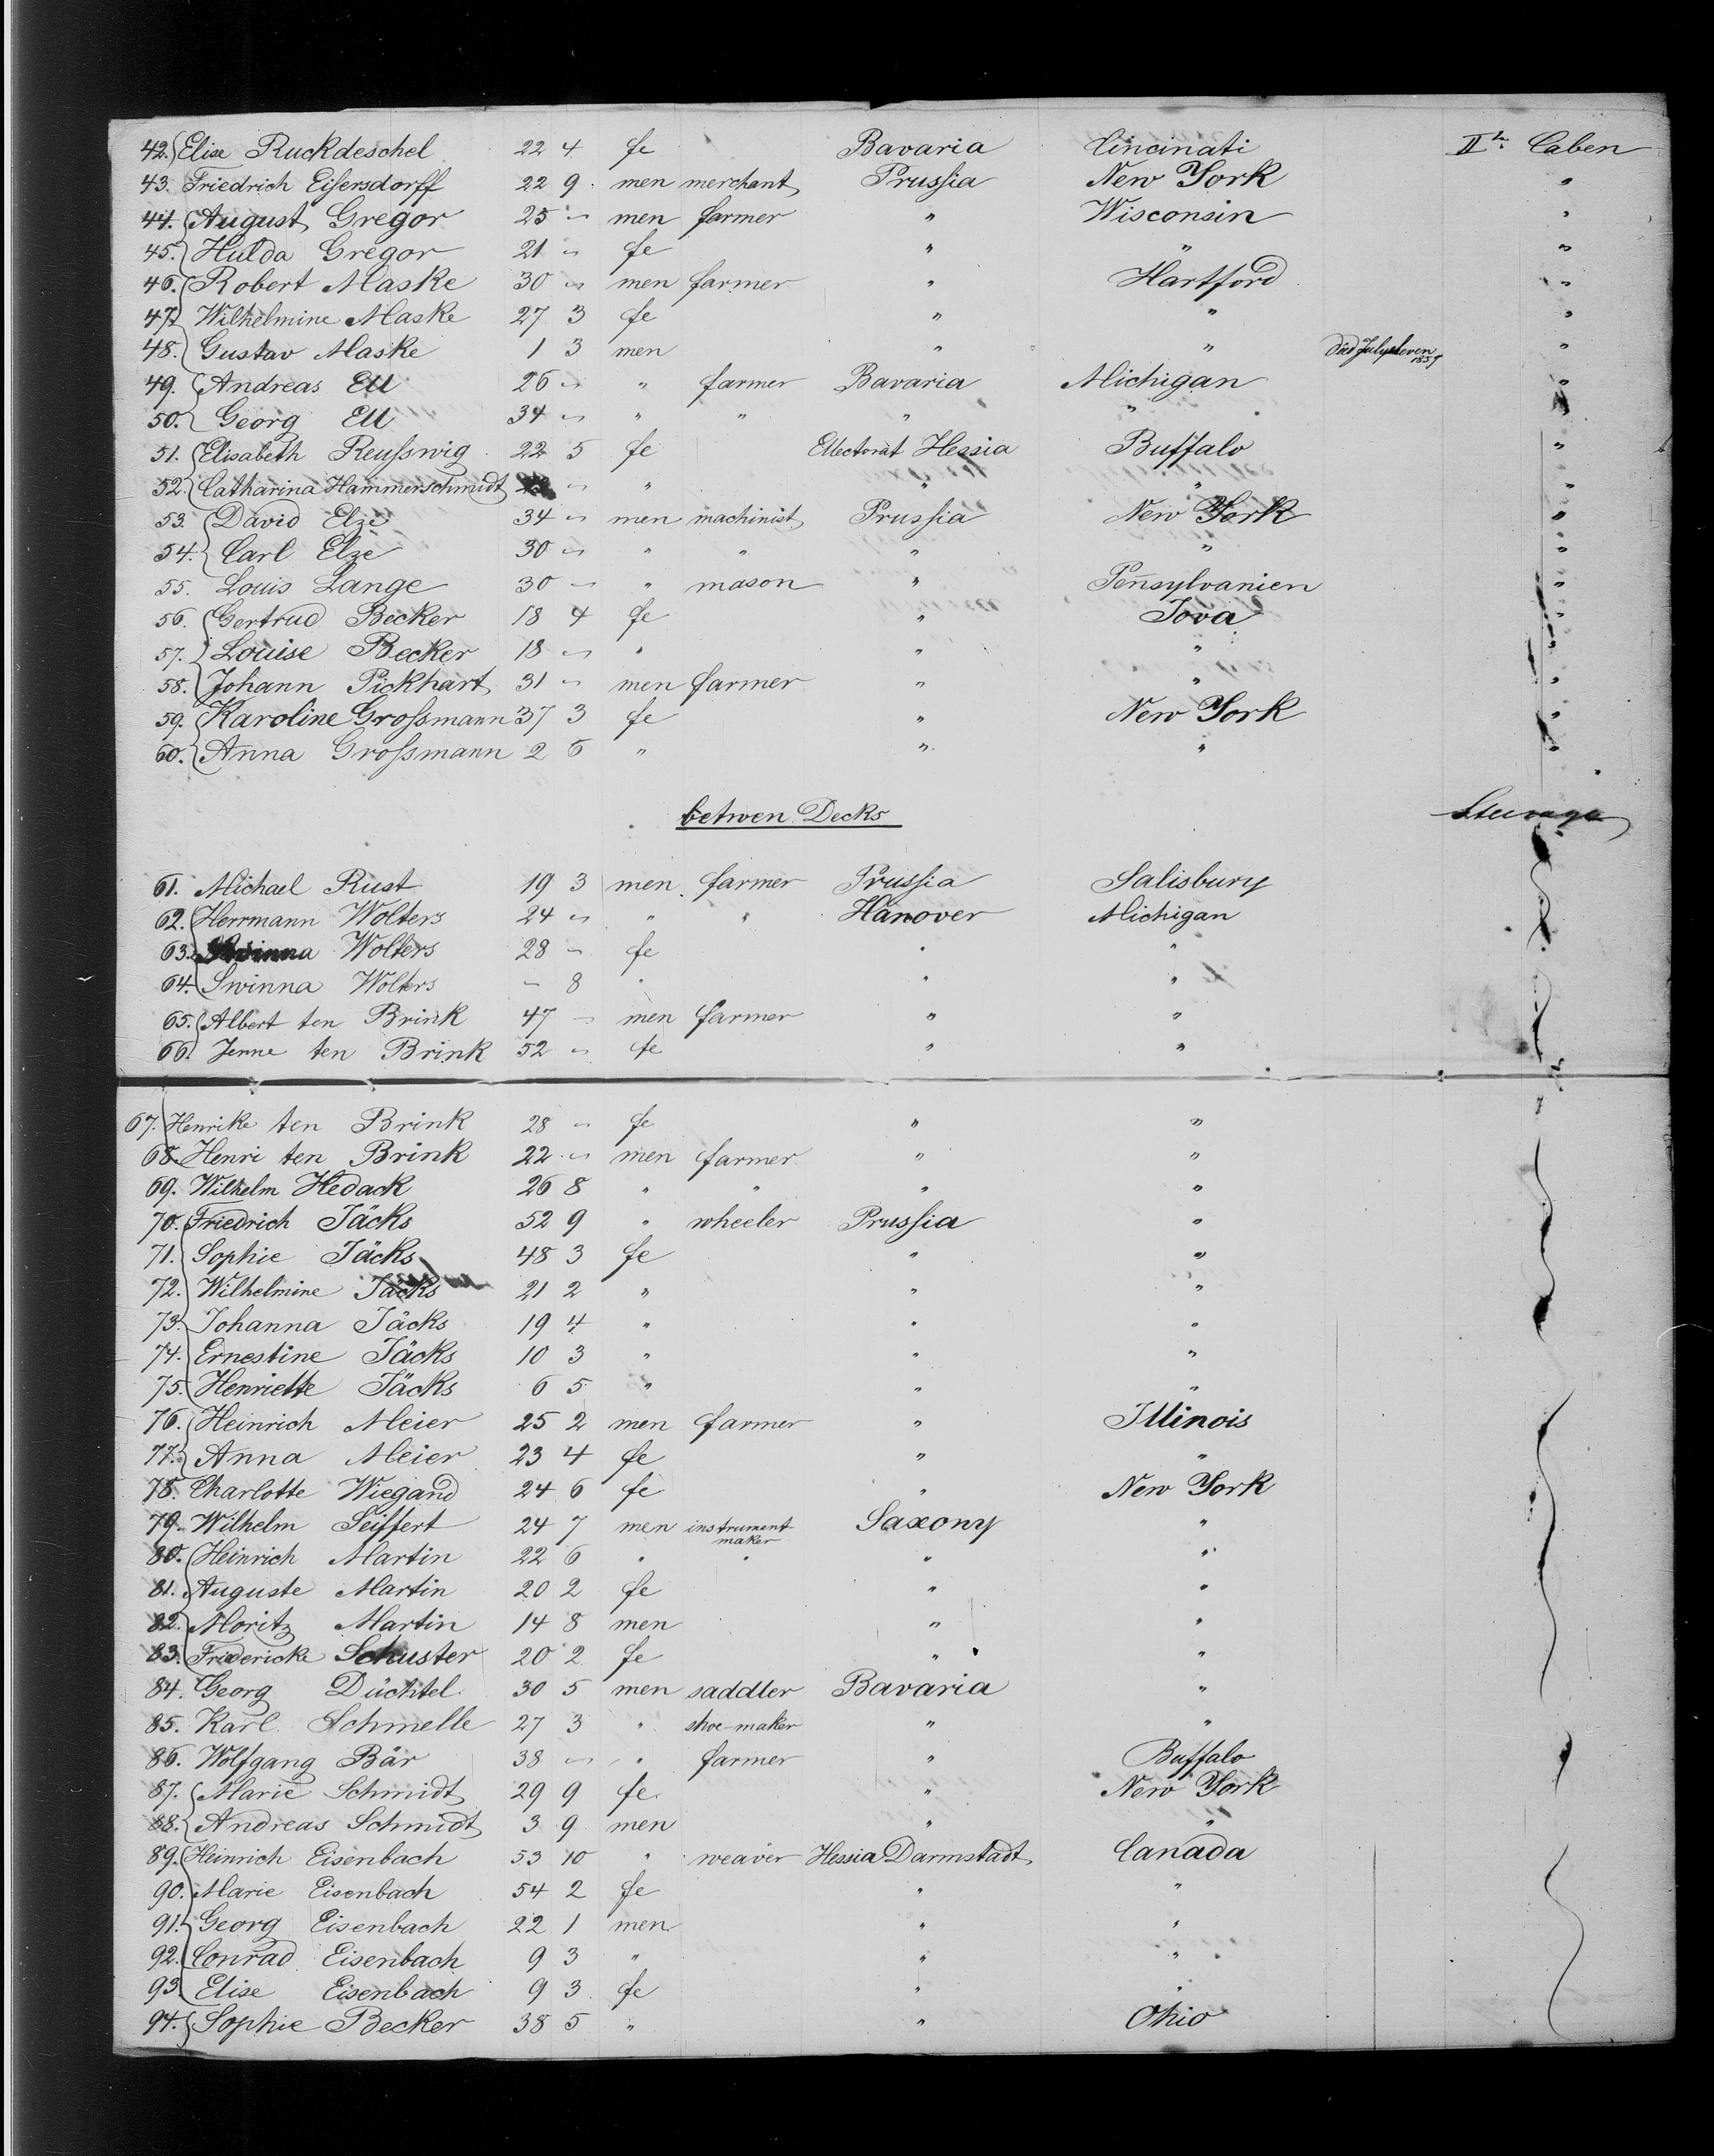 42. Elise Ruckdeschel 22 4 fe Bavaria Cincinati IIte Caben
43. Friedrich Eisersdorff 22 9 men merchant Prussia New York "
44. August Gregor 25 " men farmer " Wisconsin "
45. Hulda Gregor 21 " fe " " "
46. Robert Maske 30 " men farmer " Hartford "
47. Wilhelmine Maske 27 3 fe " " "
48. Gustav Maske 1 3 men " " died July eleven 1857 "
49. Andreas Ell 26 " " farmer Bavaria Michigan "
50. Georg Ell 34 " " " " " "
51. Elisabeth Reusswig 22 5 fe Ellectorat Hessia Buffalo "
52. Catharina Hammerschmidt " " " " "
53. David Elze 34 " men machinist Prussia New York "
54. Carl Elze 30 " " " " " "
55. Louis Lange 30 " " mason " Pennsylvanien "
56. Gertrud Becker 18 4 fe " Iova "
57. Louise Becker 18 " " " " "
58. Johann Pickhart 31 " men farmer " " "
59. Karoline Grossmann 37 3 fe " New York "
60. Anna Grossmann 2 6 " " " "
betwen Decks Steerage
61. Michael Rust 19 3 men farmer Prussia Salisbury
62. Herrmann Wolters 24 " " " Hanover Michigan
63. Wolters 28 " fe " "
64. Swinna Wolters - 8 " " "
65. Albert ten Brink 47 " men farmer " "
66. Jenne ten Brink 52 " fe " "
67. Henrike ten Brink 28 " fe " "
68. Henri ten Brink 22 " men farmer " "
69. Wilhelm Hedack 26 8 " " " "
70. Friedrich Jäcks 52 9 " wheeler Prussia "
71. Sophie Jäcks 48 3 fe " "
72. Wilhelmine Jäcks 21 2 " " "
73. Johanna Jäcks 19 4 " " "
74. Ernestine Jäcks 10 3 " " "
75. Henriette Jäcks 6 5 " " "
76. Heinrich Meier 25 2 men farmer " Illinois
77. Anna Meier 23 4 fe " "
78. Charlotte Wiegand 24 6 fe " New York
79. Wilhelm Seiffert 24 7 men instrument-maker Saxony "
80. Heinrich Martin 22 6 " " " "
81. Auguste Martin 20 2 fe " "
82. Moritz Martin 14 8 men " "
83. Fridericke Schuster 20 2 fe " "
84. Georg Düchtel 30 5 men saddler Bavaria "
85. Karl Schmelle 27 3 " shoe-maker " "
86. Wolfgang Bär 38 " " farmer " Buffalo
87. Marie Schmidt 29 9 fe " New York
88. Andreas Schmidt 3 9 men " "
89. Heinrich Eisenbach 53 10 " weaver Hessia Darmstadt Canada
90. Marie Eisenbach 54 2 fe " "
91. Georg Eisenbach 22 1 men " "
92. Conrad Eisenbach 9 3 " " "
93. Elise Eisenbach 9 3 fe " "
94. Sophie Becker 38 5 " " Ohio